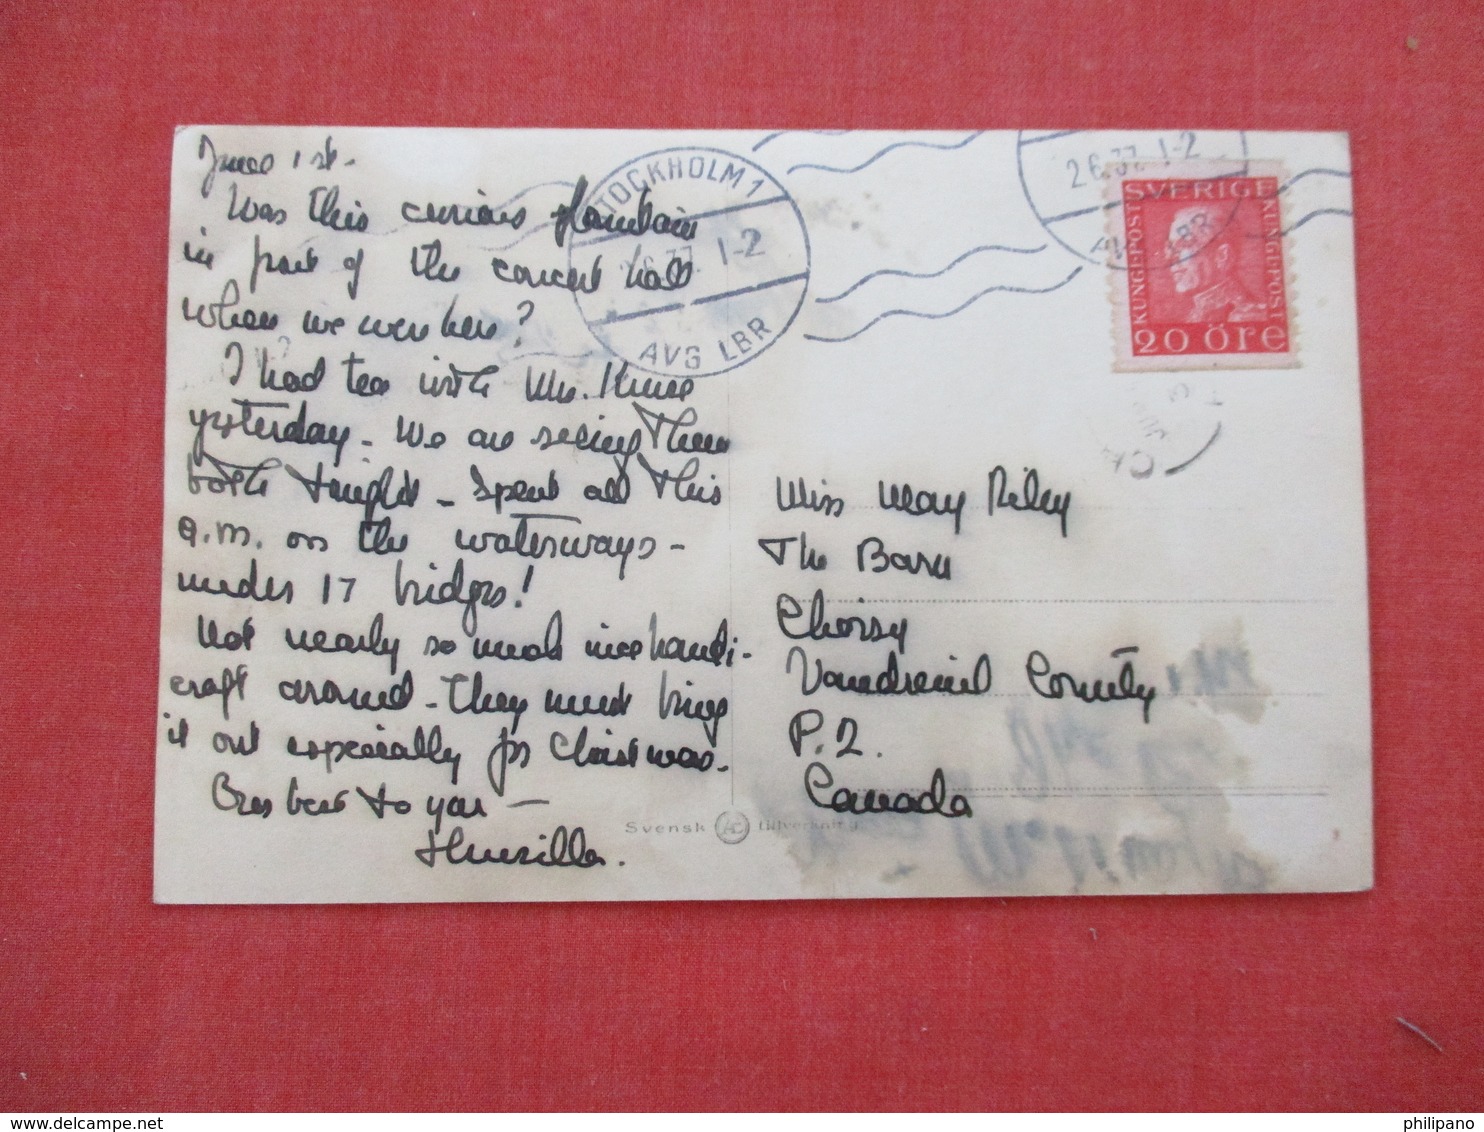 June 1st.
Was this curious fountain
in front of the concert hall
when we were here?
I had tea with Mrs.
yesterday - We are seeing them
both tonight - Spent all this
a.m. on the waterways -
under 17 bridges!
Not nearly so much nice handi-
craft around - They must bring
it out especially for Christmas.
best to you -
STOCKHOLM 1
2.6.37. 1-2
AVG LBR
2.6.37. 1-2
LBR
SVERIGE
KUNGL POST
KUNGL POST
20 ÖRE
Miss May Riley
The Barn
Choisy
Vaudreuil County
P.Q.
Canada
Svensk
philipano